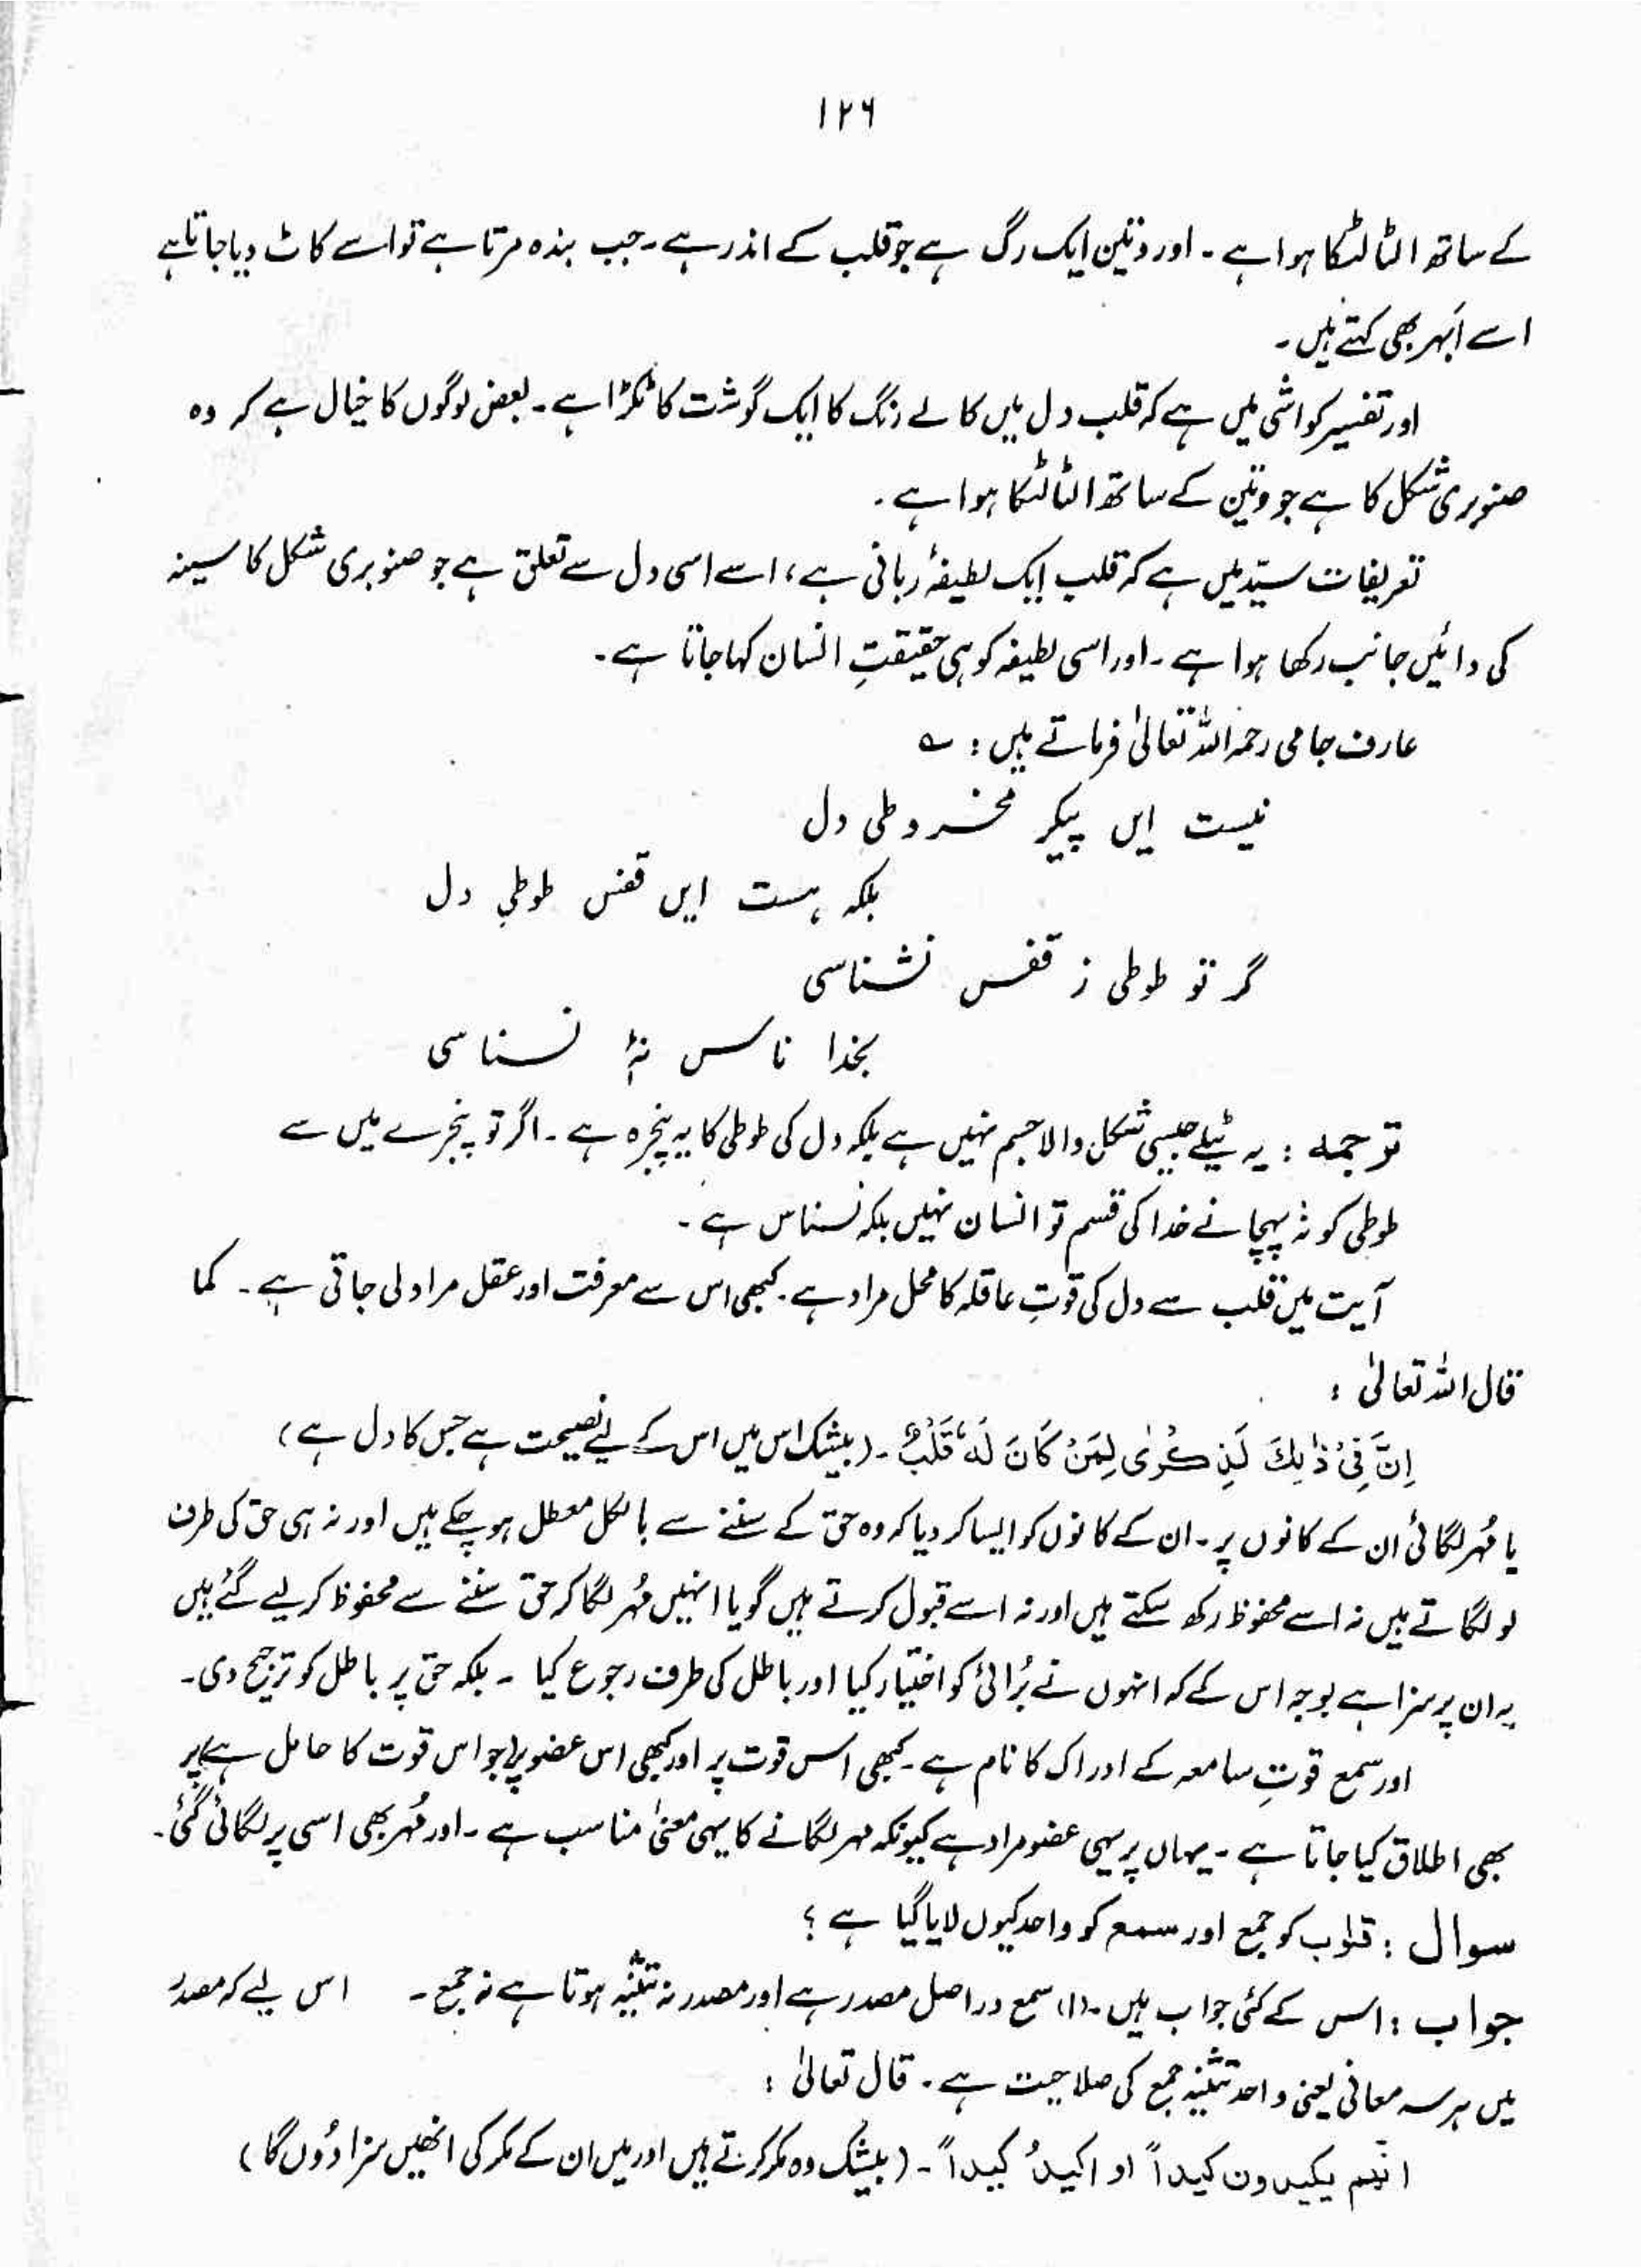 ۱۲۶
کے ساتھ الٹا لٹکا ہوا ہے ۔ اور وتین ایک رگ ہے جو قلب کے اندر ہے ۔ جب بندہ مرتا ہے تو اسے کاٹ دیا جاتا ہے
اسے اَبہر بھی کہتے ہیں ۔
اور تفسیر کواشی میں ہے کہ قلب دل میں کالے رنگ کا ایک گوشت کا ٹکڑا ہے ۔ بعض لوگوں کا خیال ہے کہ وہ
صنوبری شکل کا ہے جو وتین کے ساتھ الٹا لٹکا ہوا ہے ۔
تعریفات سیّد میں ہے کہ قلب ایک لطیفۂ ربانی ہے ، اسے اسی دل سے تعلق ہے جو صنوبری شکل کا سینہ
کی دائیں جانب رکھا ہوا ہے ۔ اور اسی لطیفہ کو ہی حقیقتِ انسان کہا جاتا ہے ۔
عارف جامی رحمہ اللہ تعالیٰ فرماتے ہیں : ؎
نیست ایں پیکر مخروطی دل
بلکہ ہست ایں قفس طوطیِ دل
گر تو طوطی ز قفس نشناسی
بخدا ناس نۂ نسناسی
ترجمہ : یہ ٹیلے جیسی شکل والا جسم نہیں ہے بلکہ دل کی طوطی کا یہ پنجرہ ہے ۔ اگر تو پنجرے میں سے
طوطی کو نہ پہچانے خدا کی قسم تو انسان نہیں بلکہ نسناس ہے ۔
آیت میں قلب سے دل کی قوتِ عاقلہ کا محل مراد ہے ۔ کبھی اس سے معرفت اور عقل مراد لی جاتی ہے ۔ کما
قال اللہ تعالیٰ :
اِنَّ فِیْ ذٰلِكَ لَذِكْرٰی لِمَنْ كَانَ لَهٗ قَلْبٌ ۔ (بیشک اس میں اس کے لیے نصیحت ہے جس کا دل ہے)
یا مُہر لگائی ان کے کانوں پر ۔ ان کے کانوں کو ایسا کر دیا کہ وہ حق کے سننے سے بالکل معطل ہو چکے ہیں اور نہ ہی حق کی طرف
لو لگاتے ہیں نہ اسے محفوظ رکھ سکتے ہیں اور نہ اسے قبول کرتے ہیں گویا انہیں مُہر لگا کر حق سننے سے محفوظ کر لیے گئے ہیں
یہ ان پر سزا ہے بوجہ اس کے کہ انہوں نے بُرائی کو اختیار کیا اور باطل کی طرف رجوع کیا ۔ بلکہ حق پر باطل کو ترجیح دی ۔
اور سمع قوتِ سامعہ کے ادراک کا نام ہے ۔ کبھی اس قوت پر اور کبھی اس عضو پر (جو اس قوت کا حامل ہے) پر
بھی اطلاق کیا جاتا ہے ۔ یہاں پر یہی عضو مراد ہے کیونکہ مہر لگانے کا یہی معنیٰ مناسب ہے ۔ اور مُہر بھی اسی پر لگائی گئی ۔
سوال : قلوب کو جمع اور سمع کو واحد کیوں لایا گیا ہے ؟
جواب : اس کے کئی جواب ہیں ۔ (۱) سمع در اصل مصدر ہے اور مصدر نہ تثنیہ ہوتا ہے نہ جمع ۔ اس لیے کہ مصدر
میں ہر سہ معانی یعنی واحد تثنیہ جمع کی صلاحیت ہے ۔ قال تعالیٰ :
انّهم یکیدون کیداً او اکیدُ کیداً ۔ (بیشک وہ مکر کرتے ہیں اور میں ان کے مکر کی انھیں سزا دُوں گا)